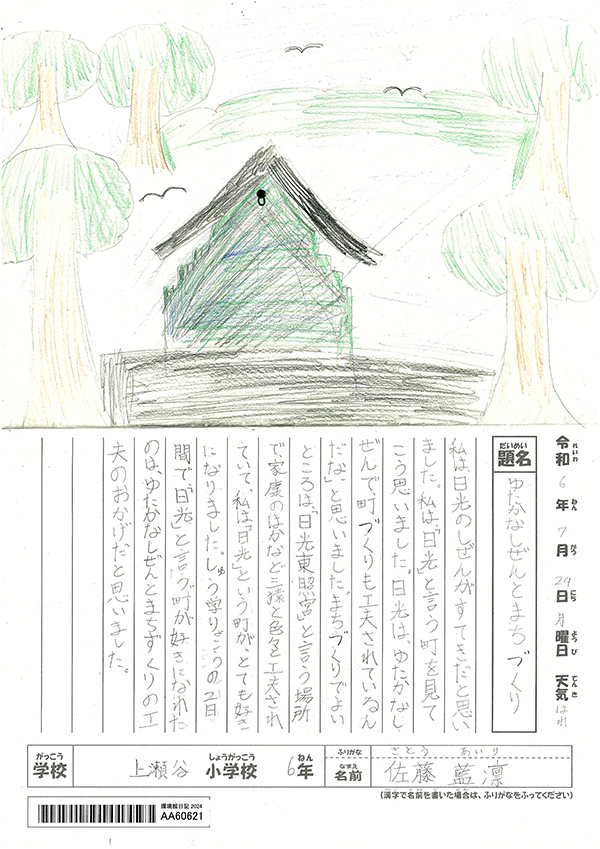 令和6年7月29日月曜日 天気はれ
れいわ ねん がつ にち ようび てんき
だいめい
題名 ゆたかなしぜんとまちづくり
私は日光のしぜんがすてきだと思い
ました。私は、「日光」と言う町を見て
こう思いました。日光は、ゆたかなし
ぜんで、町づくりも工夫されているん
だな。と思いました。まちづくりでよい
ところは、「日光東照宮」と言う場所
で、家康のはかなど三猿と色々工夫され
ていて、私は「日光」という町が、とても好き
になりました。しゅう学りょこうの2日
間で、「日光」と言う、町が好きになれた
のは、ゆたかなしぜんとまちずくりの工
夫のおかげだと思いました。
がっこう しょうがっこう ねん
学校 上瀬谷 小学校 6年
ふりがな さとう あいり
なまえ
名前 佐藤 藍凛
(漢字で名前を書いた場合は、ふりがなをふってください)
環境絵日記2024
AA60621